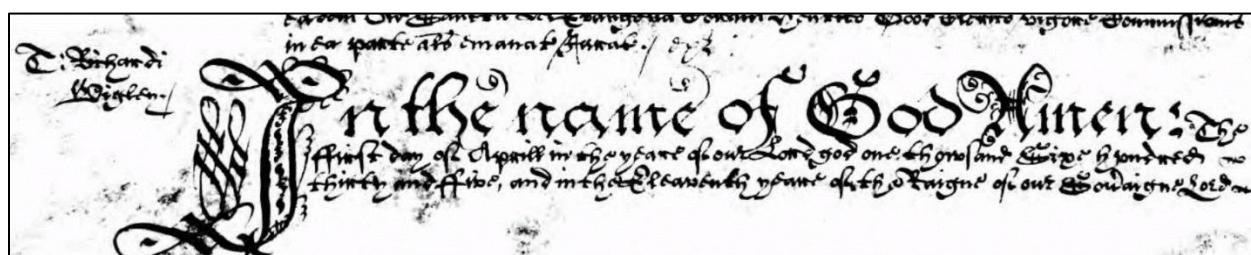 vigore Commissionis
in ea parte als emanat Jurat
T: Richardi
Wiglen
In the name of God Amen: The
ffirst day of Aprill in the yeare of our Lord god one thowsand Sixe hundred
thirty and ffive, and in the Eleaventh yeare of the Raigne of our Sov'aigne Lord